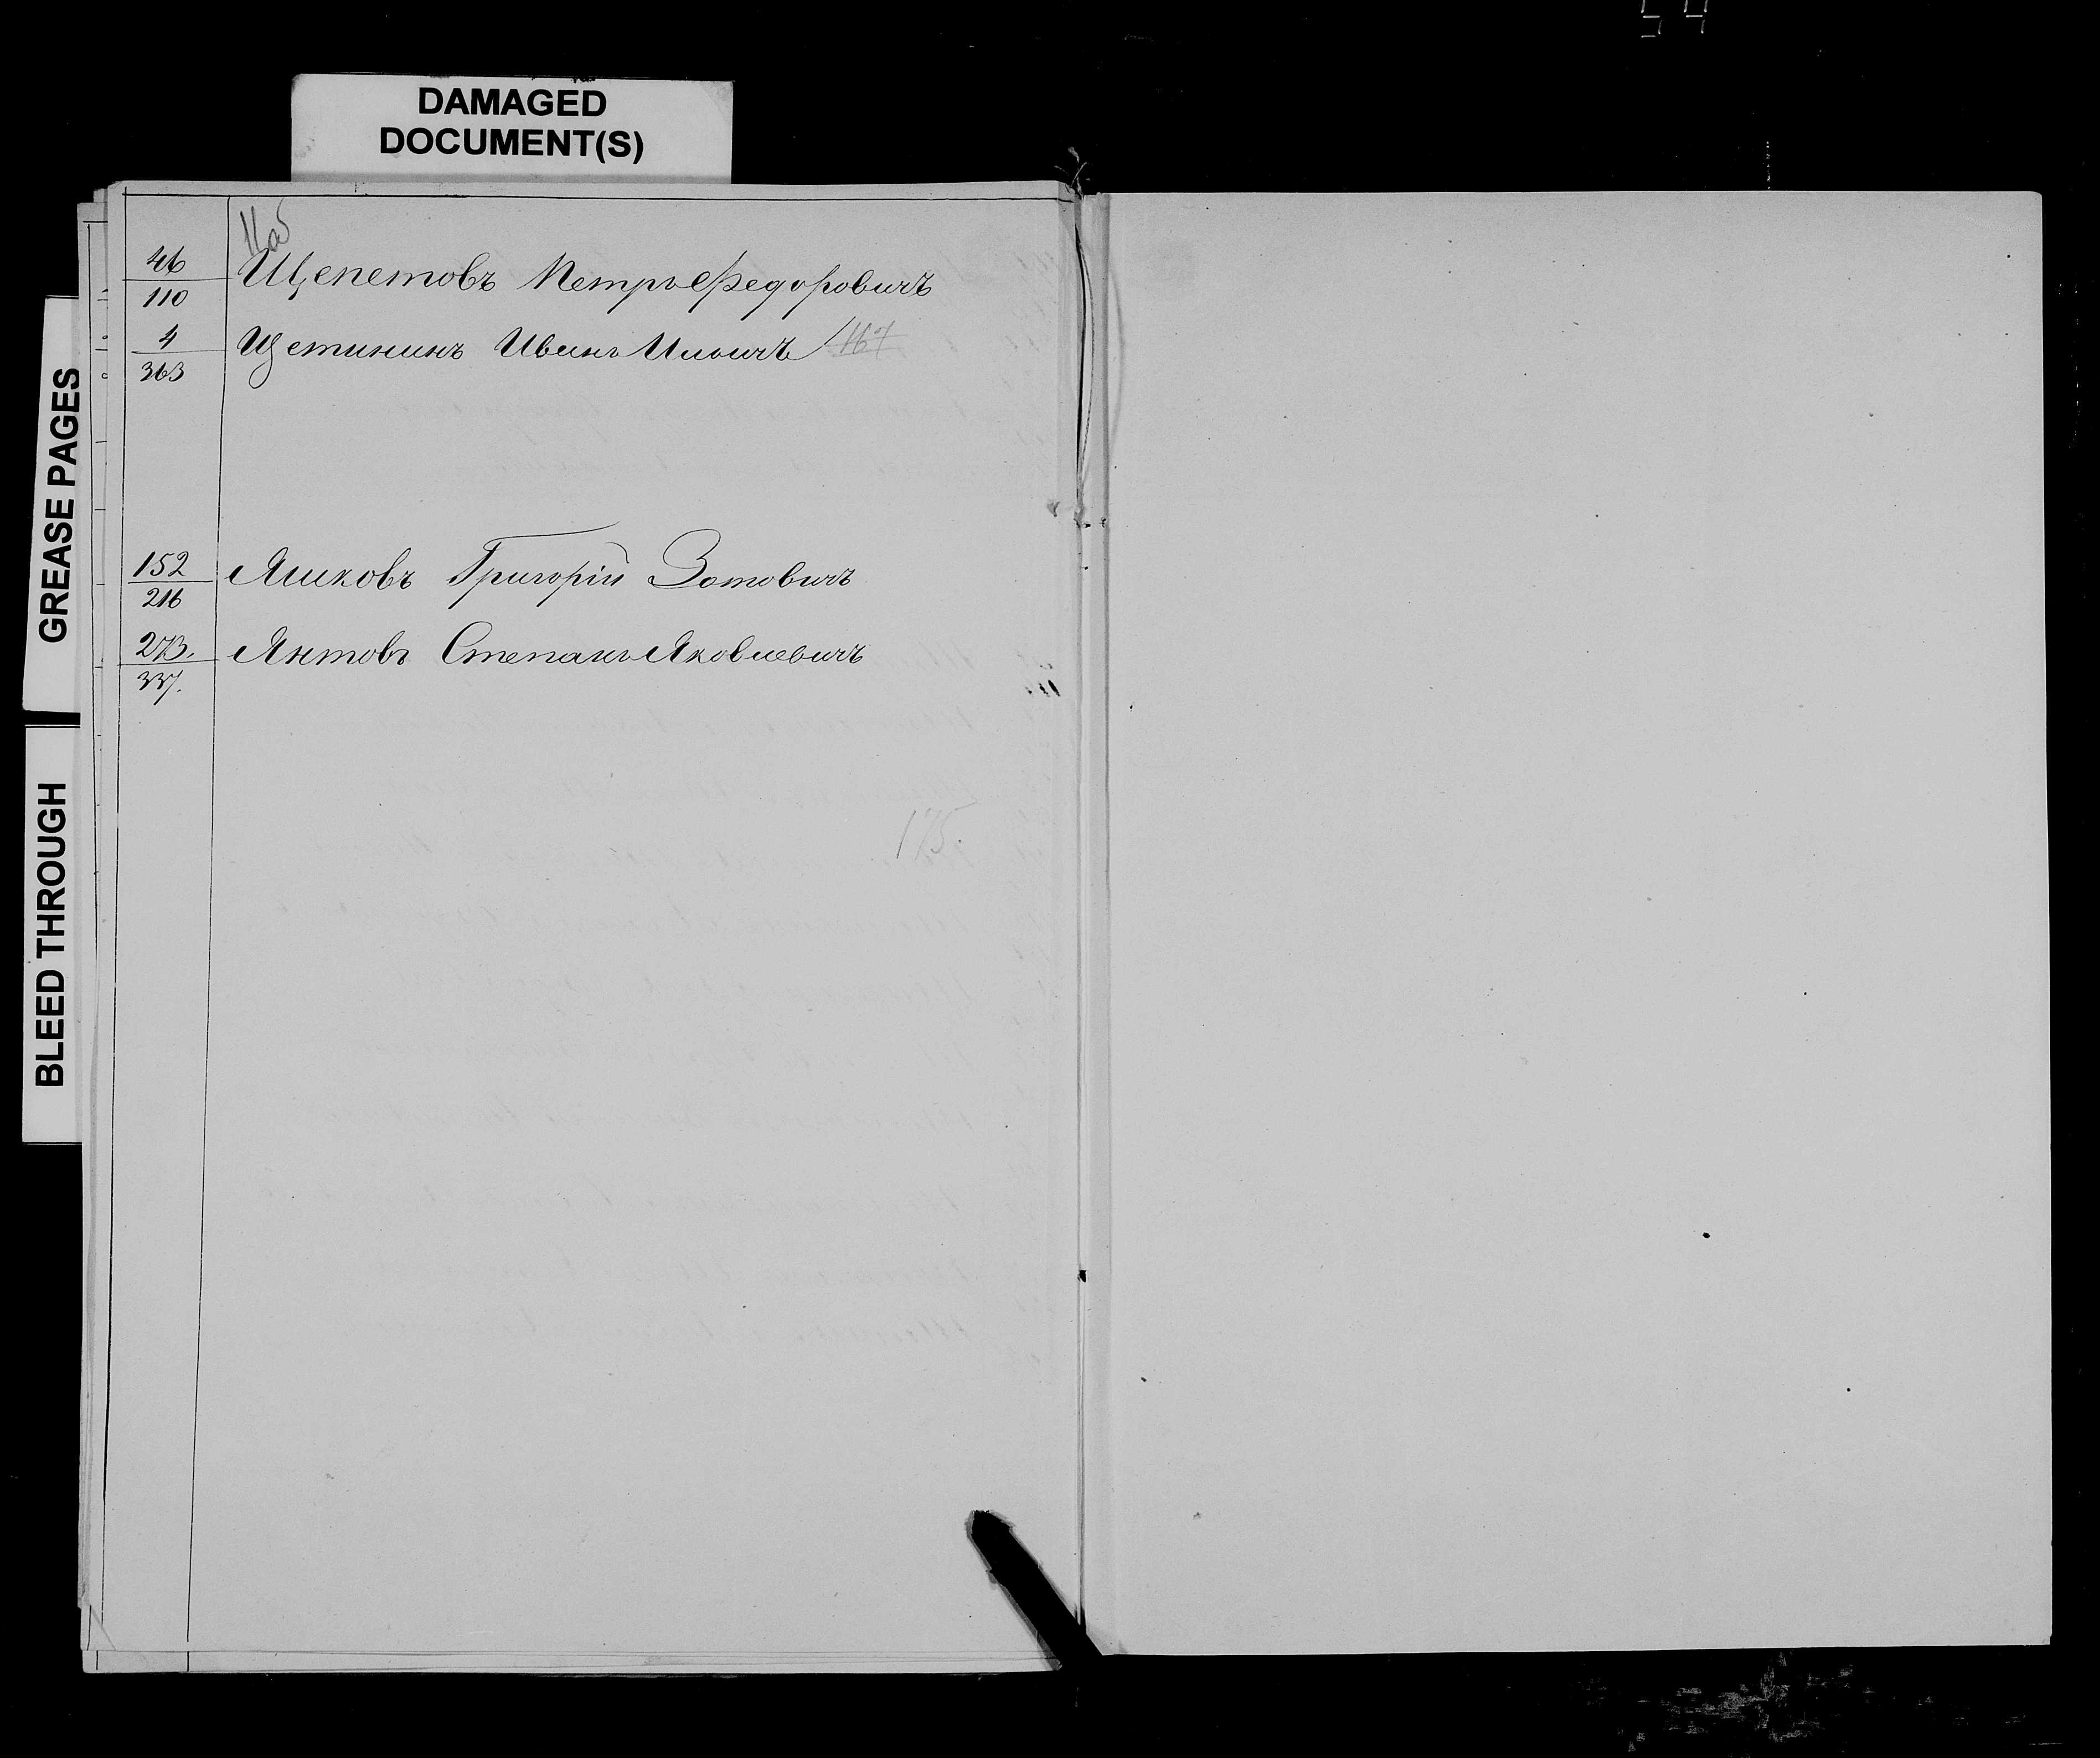 54
DAMAGED
DOCUMENT(S)
GREASE PAGES
BLEED THROUGH
46
110
Щепетовъ Петръ Федоровичъ
4
363
Щетининъ Иванъ Ильичъ 167
152
216
Яшковъ Григорій Зотовичъ
273.
337.
Янтовъ Степанъ Яковлевичъ
175.